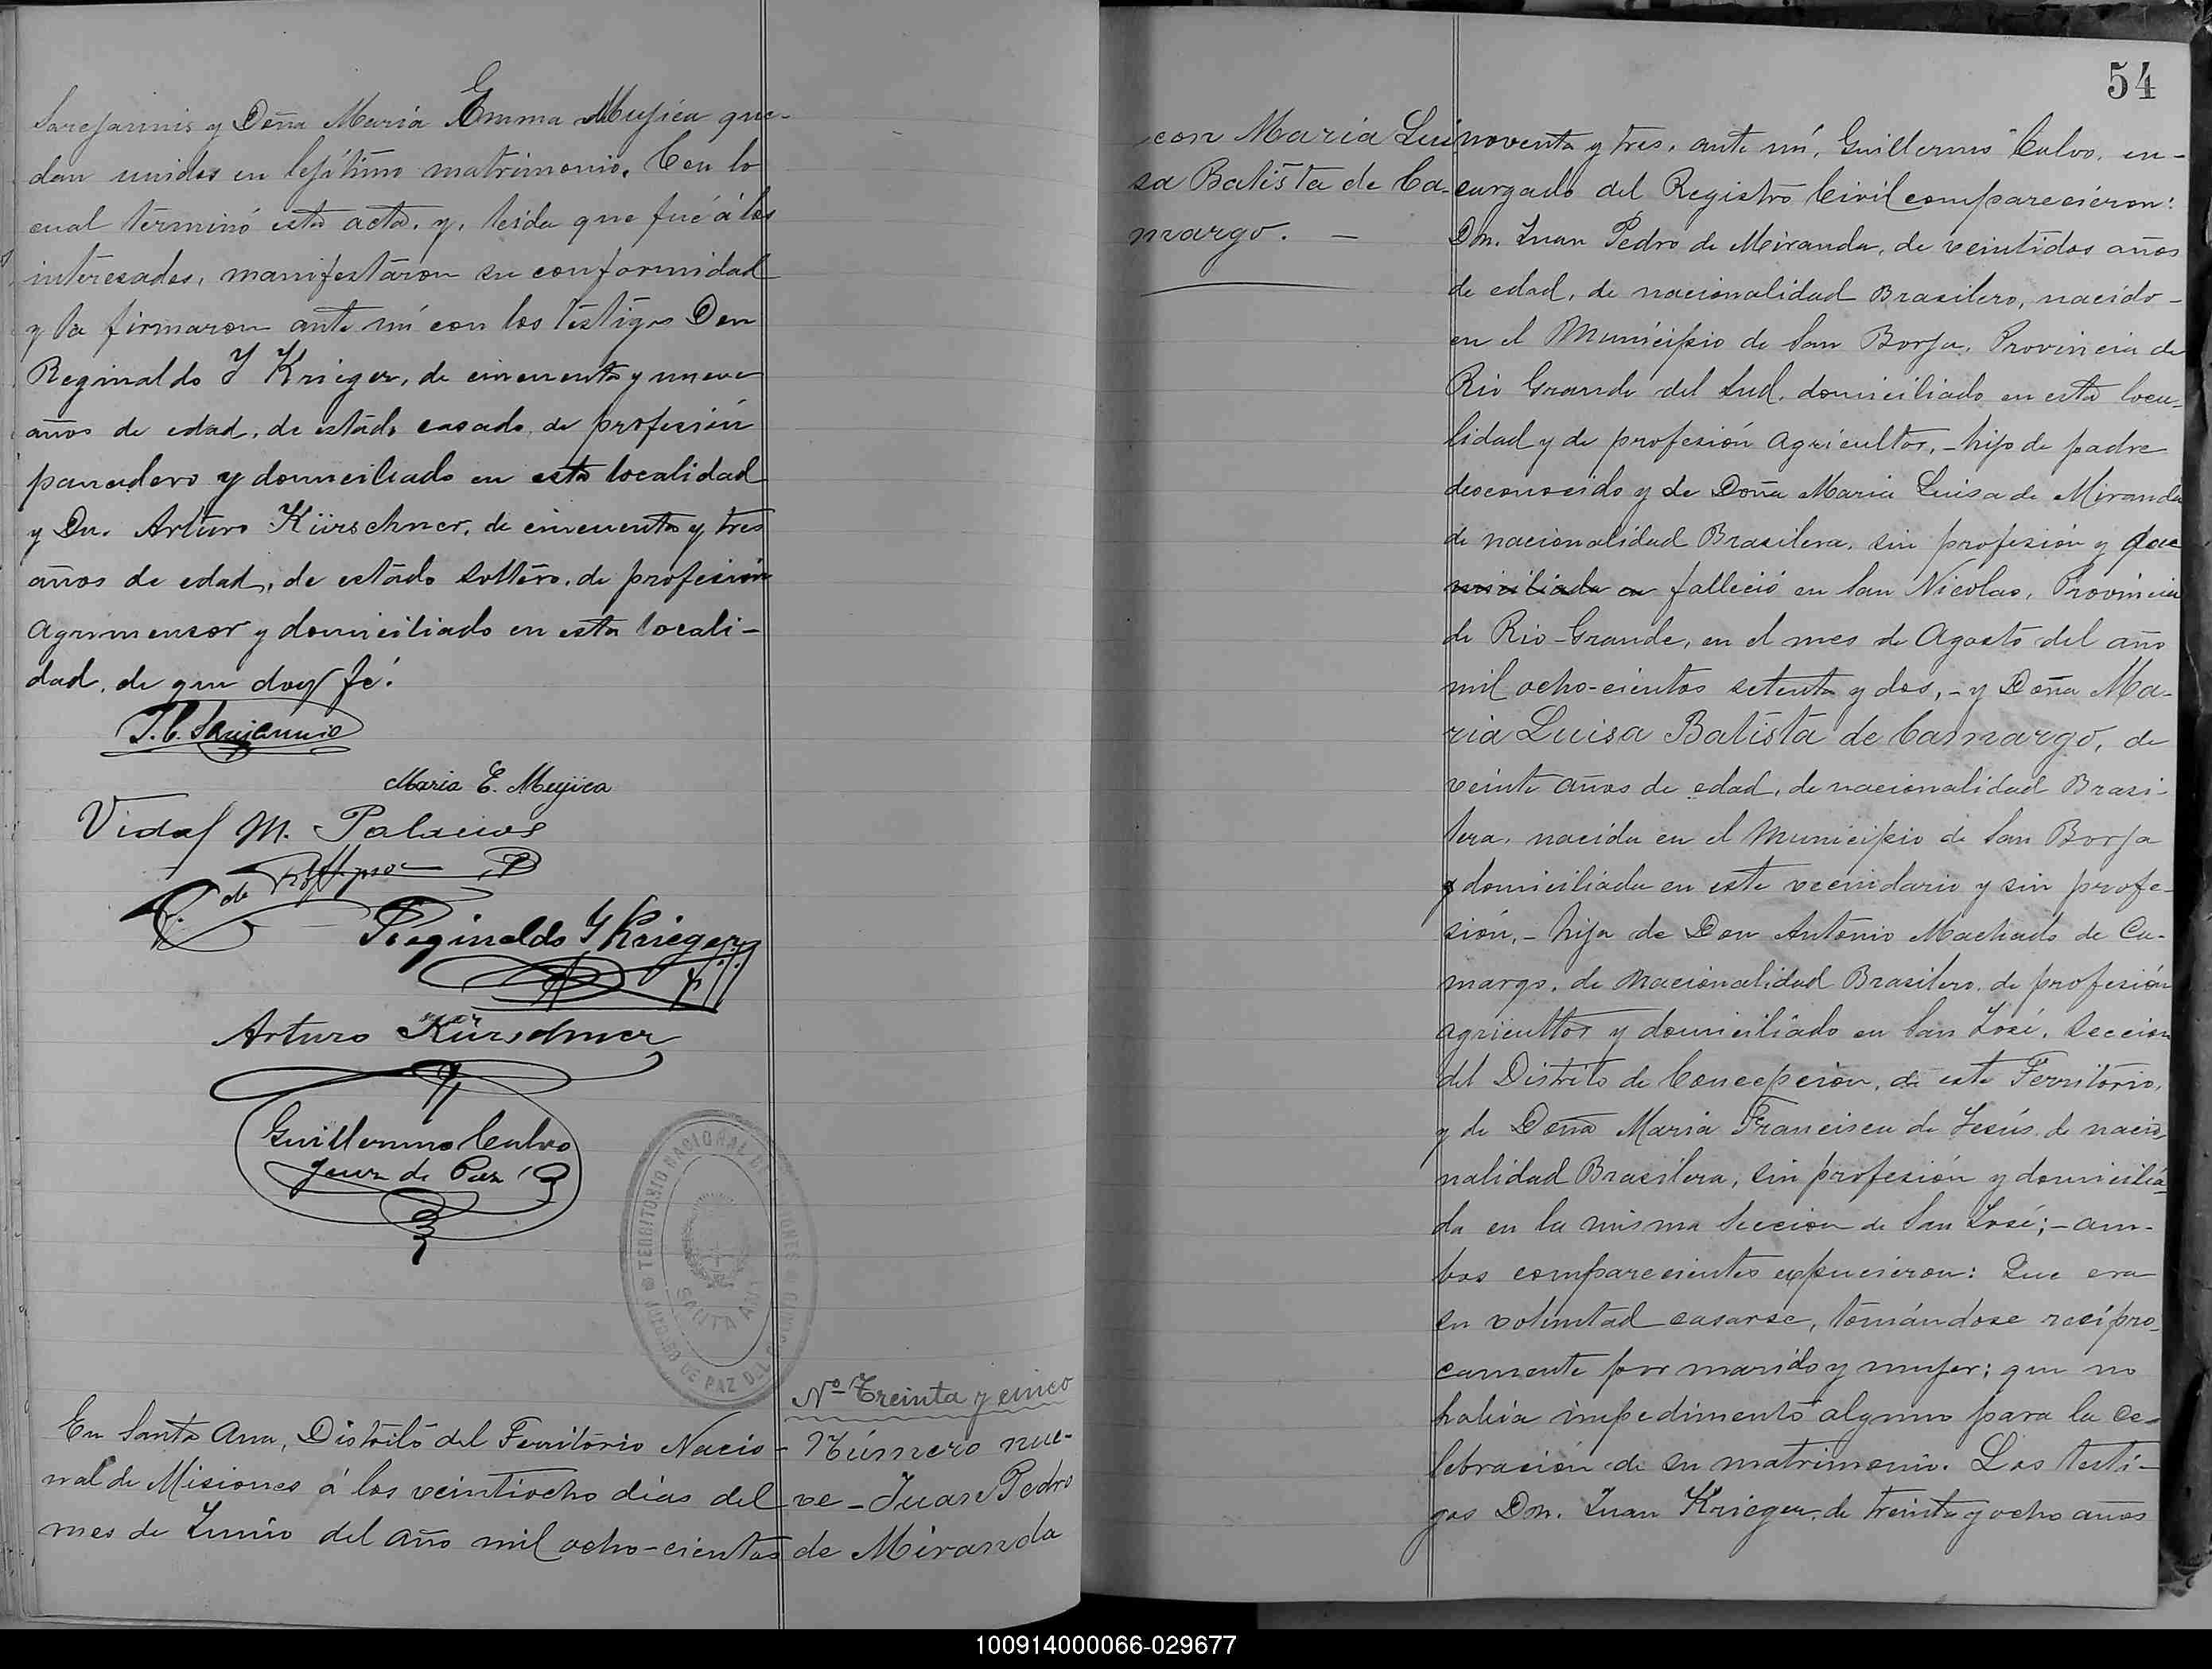 Sarejannis y Doña María Emma Mujica que-
dan unidos en lejítimo matrimonio. Con lo
cual terminó esta acta, y, leida que fué á los
interesados, manifestaron su conformidad
y la firmaron ante mí con los testigos Don
Reginaldo Y Krieger, de cincuenta y nueve
años de edad, de estado casado, de profesión
panadero y domiciliado en esta localidad
y Dn. Arturo Kürschner, de cincuenta y tres
años de edad, de estado soltero, de profesión
agrimensor y domiciliado en esta locali-
dad, de que doy fé.
Maria E. Mujica
Vidal M. Palacios
Reginaldo Y Krieger
Arturo Kürschner
Guillermo Calvo
Juez de Paz
TERRITORIO NACIONAL DE MISIONES
SANTA ANA
JUZGADO DE PAZ DEL
En Santa Ana, Distrito del Territorio Nacio-
nal de Misiones á los veintiocho dias del
mes de Junio del año mil ocho-cientos
Nº Treinta y cinco
Número nue-
ve - Juan Pedro
de Miranda
54
con María Lui
sa Batista de Ca-
margo. —
noventa y tres, ante mí, Guillermo Calvo, en-
cargado del Registro Civil comparecieron:
Dn. Juan Pedro de Miranda, de veintidos años
de edad, de nacionalidad Brasilero, nacido-
en el Municipio de San Borja, Provincia de
Rio Grande del Sud, domiciliado en esta loca-
lidad y de profesión agricultor, - hijo de padre
desconocido y de Doña Maria Luisa de Miranda
de nacionalidad Brasilera, sin profesión y que
miciliada en falleció en San Nicolas, Provincia
de Rio-Grande, en el mes de Agosto del año
mil ocho-cientos setenta y dos, - y Doña Ma-
ria Luisa Batista de Camargo, de
veinte años de edad, de nacionalidad Brasi-
lera, nacida en el Municipio de San Borja
y domiciliada en este vecindario y sin profe-
sión, - hija de Don Antonio Machado de Ca-
margo, de nacionalidad Brasilero, de profesión
agricultor y domiciliado en San José, Seccion
del Distrito de Concepcion, de este Territorio,
y de Doña María Francisca de Jesús, de nacio-
nalidad Brasilera, sin profesión y domicilia-
da en la misma Seccion de San José; - am-
bos comparecientes expusieron: Que era
su voluntad casarse, tomándose recípro-
camente por marido y mujer; que no
habia impedimento alguno para la ce-
lebración de su matrimonio. Los testi-
gos Dn. Juan Krieger, de treinta y ocho años
100914000066-029677